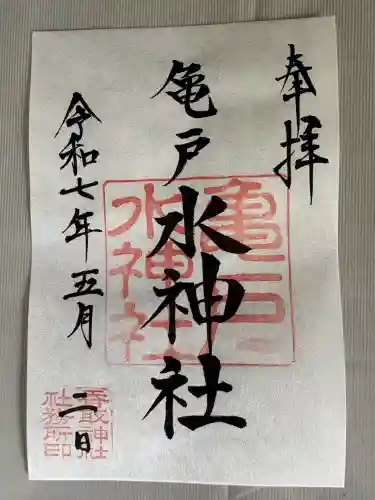 奉拝
亀戸水神社
令和七年五月二日
亀戸水神社
香取神社
社務所印